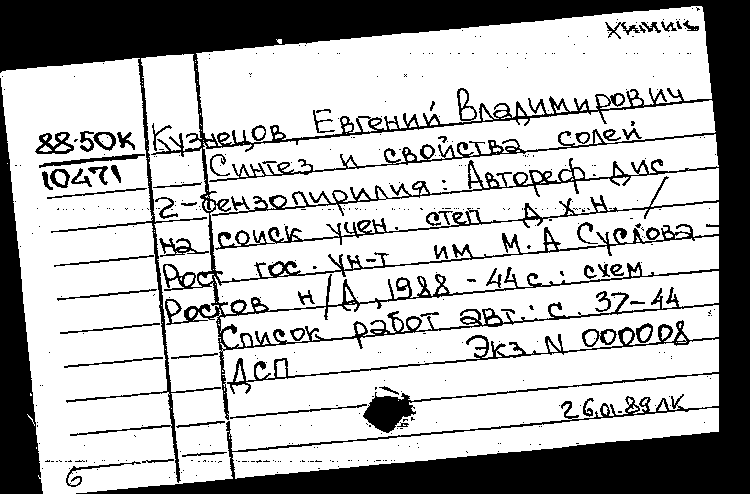 химик
88-50К
10471
Кузнецов, Евгений Владимирович
Синтез и свойства солей
2-бензопирилия: Автореф. дис
на соиск учен. степ. д.х.н. /
Рост. гос. ун-т им. М.А Суслова -
Ростов н/Д, 1988 - 44 с.: схем.
Список работ авт.: с. 37-44
ДСП Экз. N 000008
26.01.89 ЛК
6